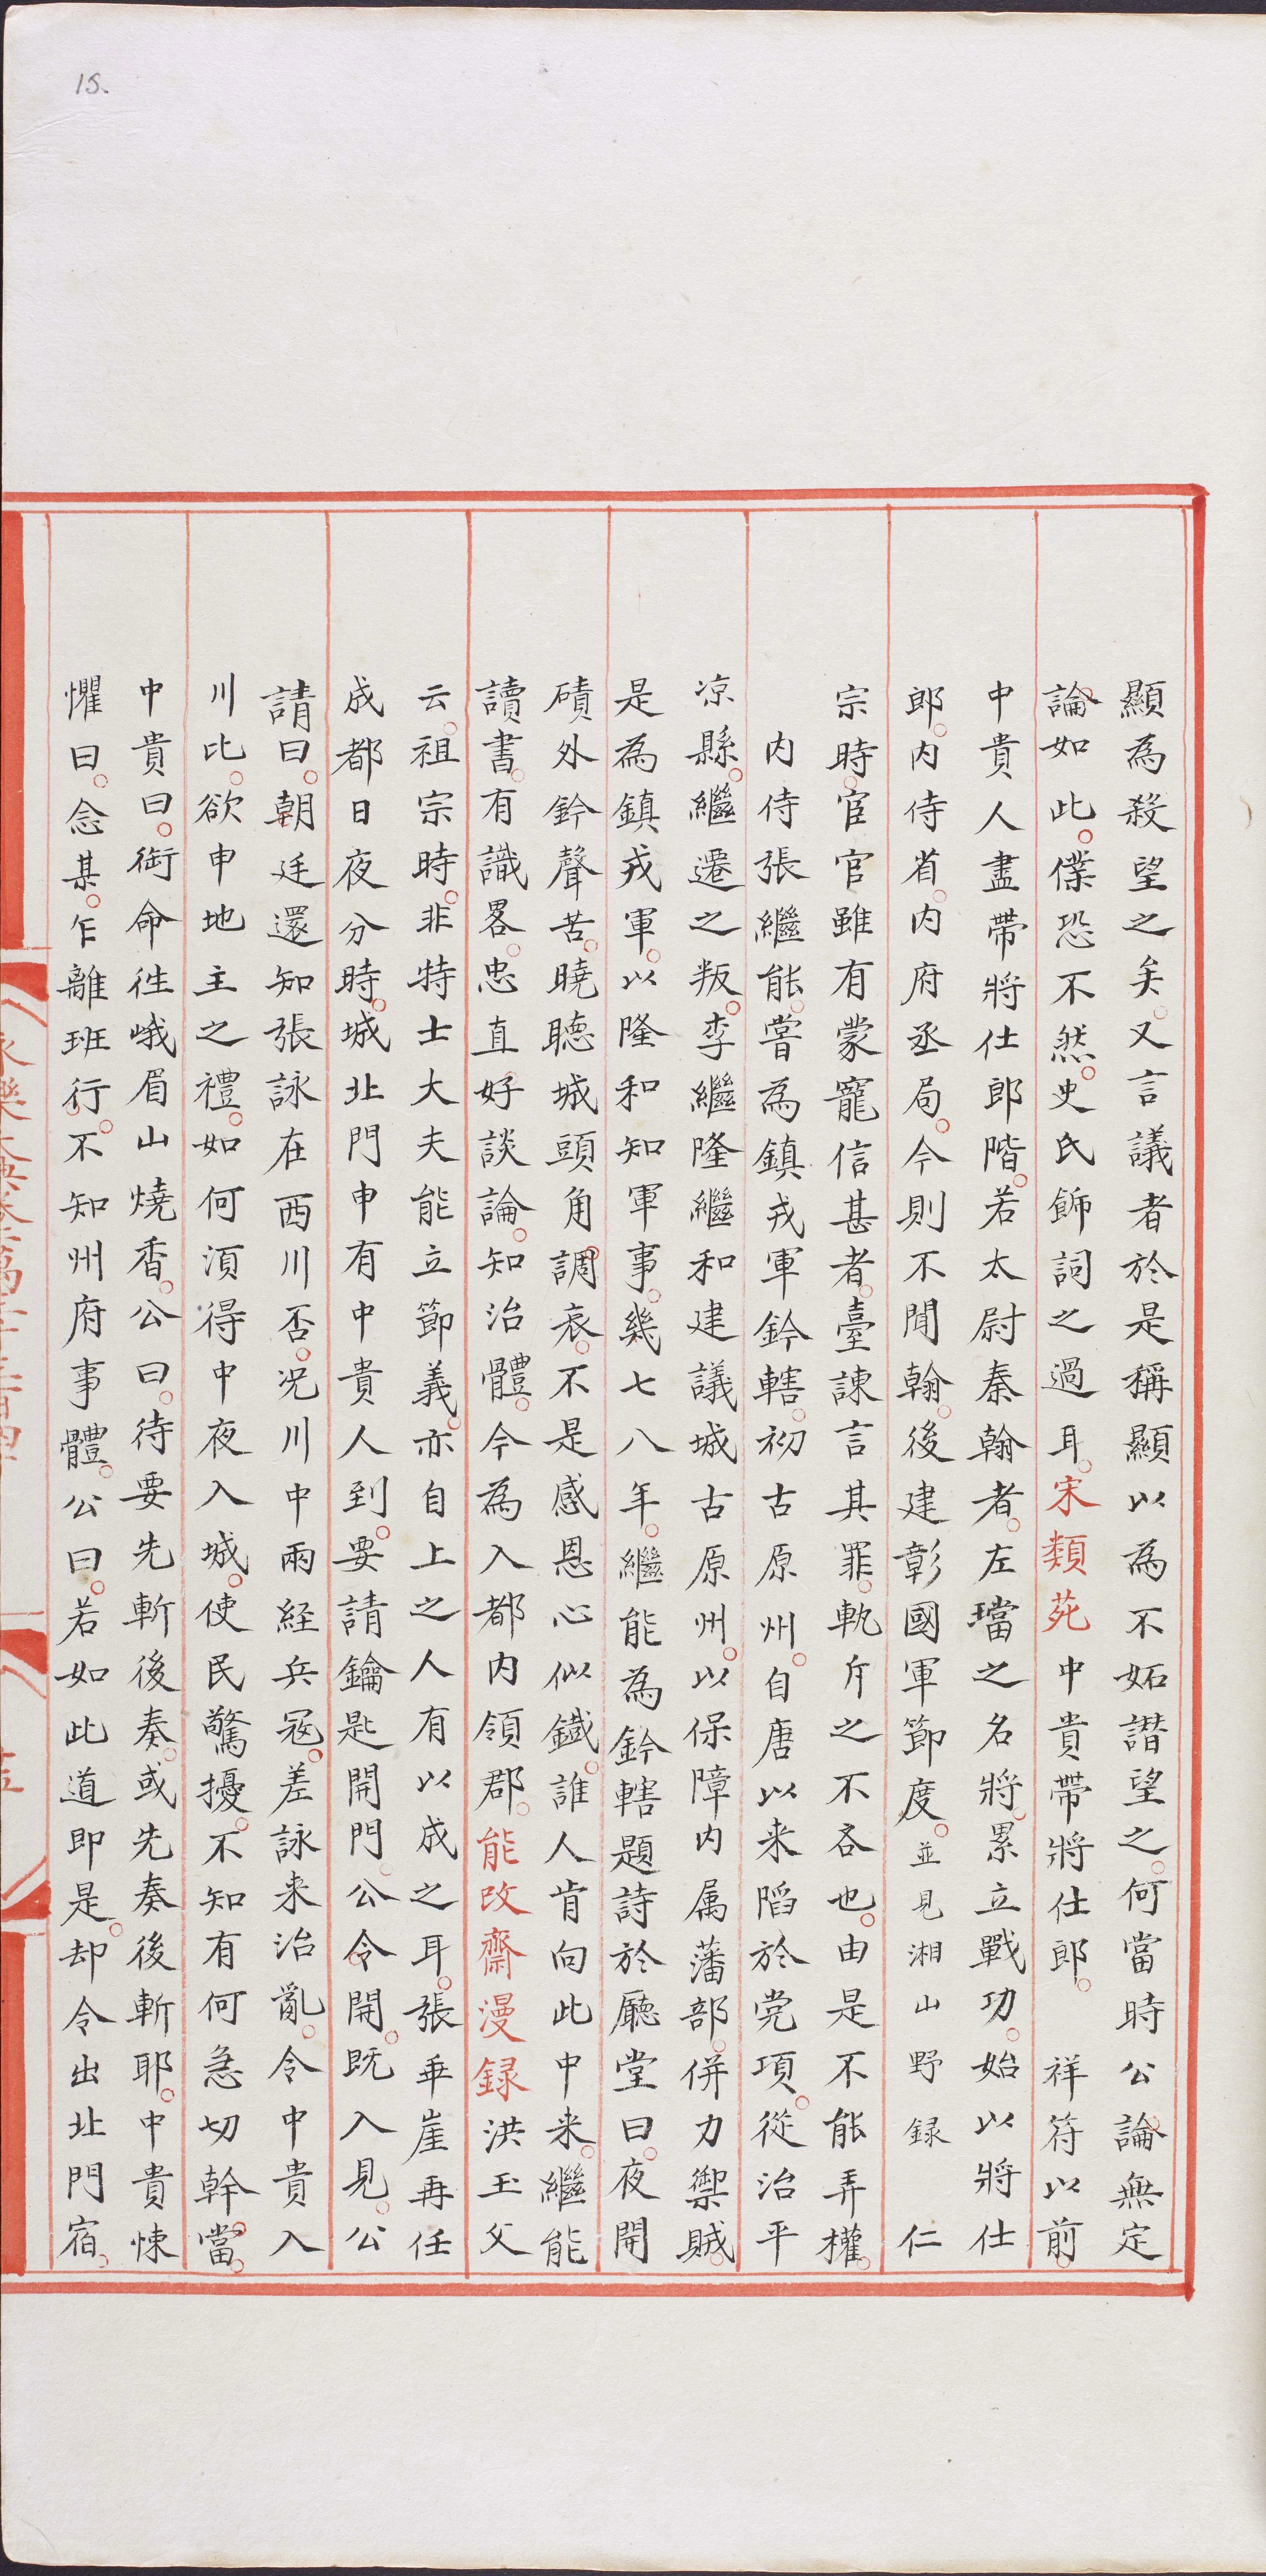 15.
顯為殺望之矣。又言議者於是稱顯以為不妬譖望之。何當時公論無定
論如此。僕恐不然。史氏飾詞之過耳。宋類苑中貴帶將仕郎。祥符以前。
中貴人盡帶將仕郎階。若太尉秦翰者。左璫之名將。累立戰功。始以將仕
郎。内侍省。内府丞局。今則不聞翰。後建彰國軍節度。並見湘山野録仁
宗時。宦官雖有蒙寵信甚者。臺諫言其罪。軏斥之不吝也。由是不能弄權。
内侍張繼能。嘗為鎮戎軍鈐轄。初古原州。自唐以来陷於党項。從治平
凉縣。繼遷之叛。李繼隆繼和建議城古原州。以保障内属藩部。併力禦賊。
是為鎮戎軍。以隆和知軍事。幾七八年。繼能為鈐轄題詩於廳堂曰。夜開
磧外鈴聲苦。曉聽城頭角調哀。不是感恩心似鐵。誰人肯向此中来。繼能
讀書。有識畧。忠直好談論。知治體。今為入都内領郡。能改齋漫録洪玉父
云。祖宗時。非特士大夫能立節義。亦自上之人有以成之耳。張乖崖再任
成都日夜分時。城北門申有中貴人到。要請鑰匙開門。公令開。既入見。公
請曰。朝廷還知張詠在西川否。况川中兩経兵冦。差詠来治亂。令中貴入
川比。欲申地主之禮。如何湏得中夜入城。使民驚擾。不知有何急切幹當。
中貴曰。銜命徃峨眉山燒香。公曰。待要先斬後奏。或先奏後斬耶。中貴悚
懼曰。念某。乍離班行。不知州府事體。公曰。若如此道即是。却令出北門宿。